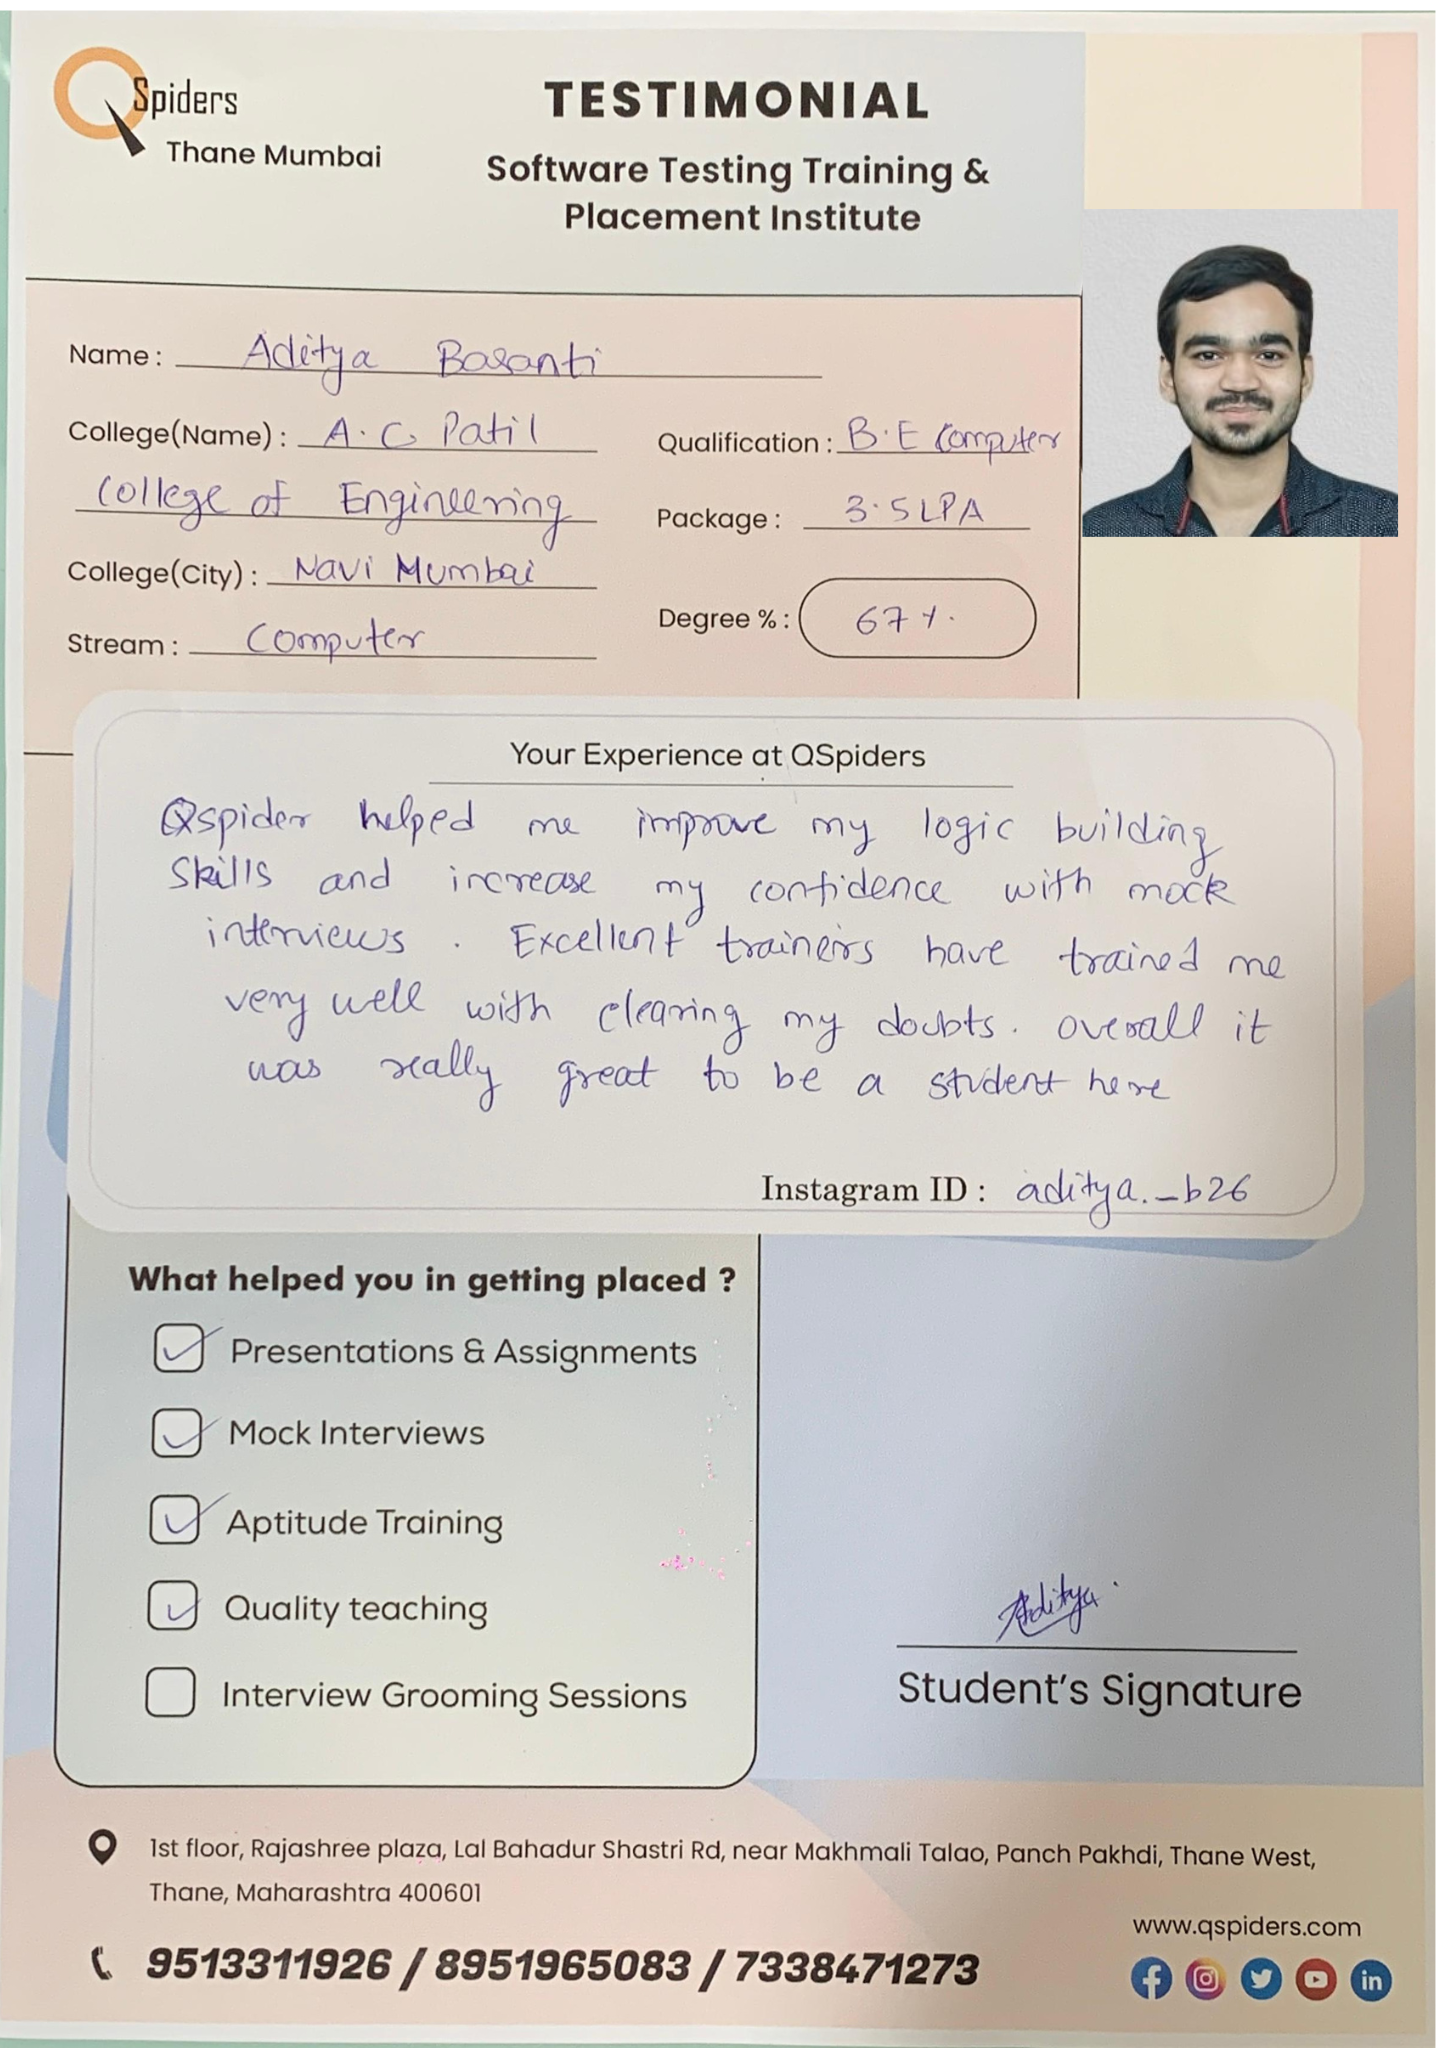 QSpiders
Thane Mumbai
TESTIMONIAL
Software Testing Training &
Placement Institute
Name : Aditya Basanti
College(Name) : A.C Patil
College of Engineering
College(City) : Navi Mumbai
Stream : Computer
Qualification : B.E Computer
Package : 3.5 LPA
Degree % : 67 %.
Your Experience at QSpiders
Qspider helped me improve my logic building
Skills and increase my confidence with mock
interviews . Excellent trainers have trained me
very well with clearing my doubts. overall it
was really great to be a student here
Instagram ID : aditya._b26
What helped you in getting placed ?
Presentations & Assignments
Mock Interviews
Aptitude Training
Quality teaching
Interview Grooming Sessions
Aditya.
Student's Signature
1st floor, Rajashree plaza, Lal Bahadur Shastri Rd, near Makhmali Talao, Panch Pakhdi, Thane West,
Thane, Maharashtra 400601
9513311926 / 8951965083 / 7338471273
www.qspiders.com